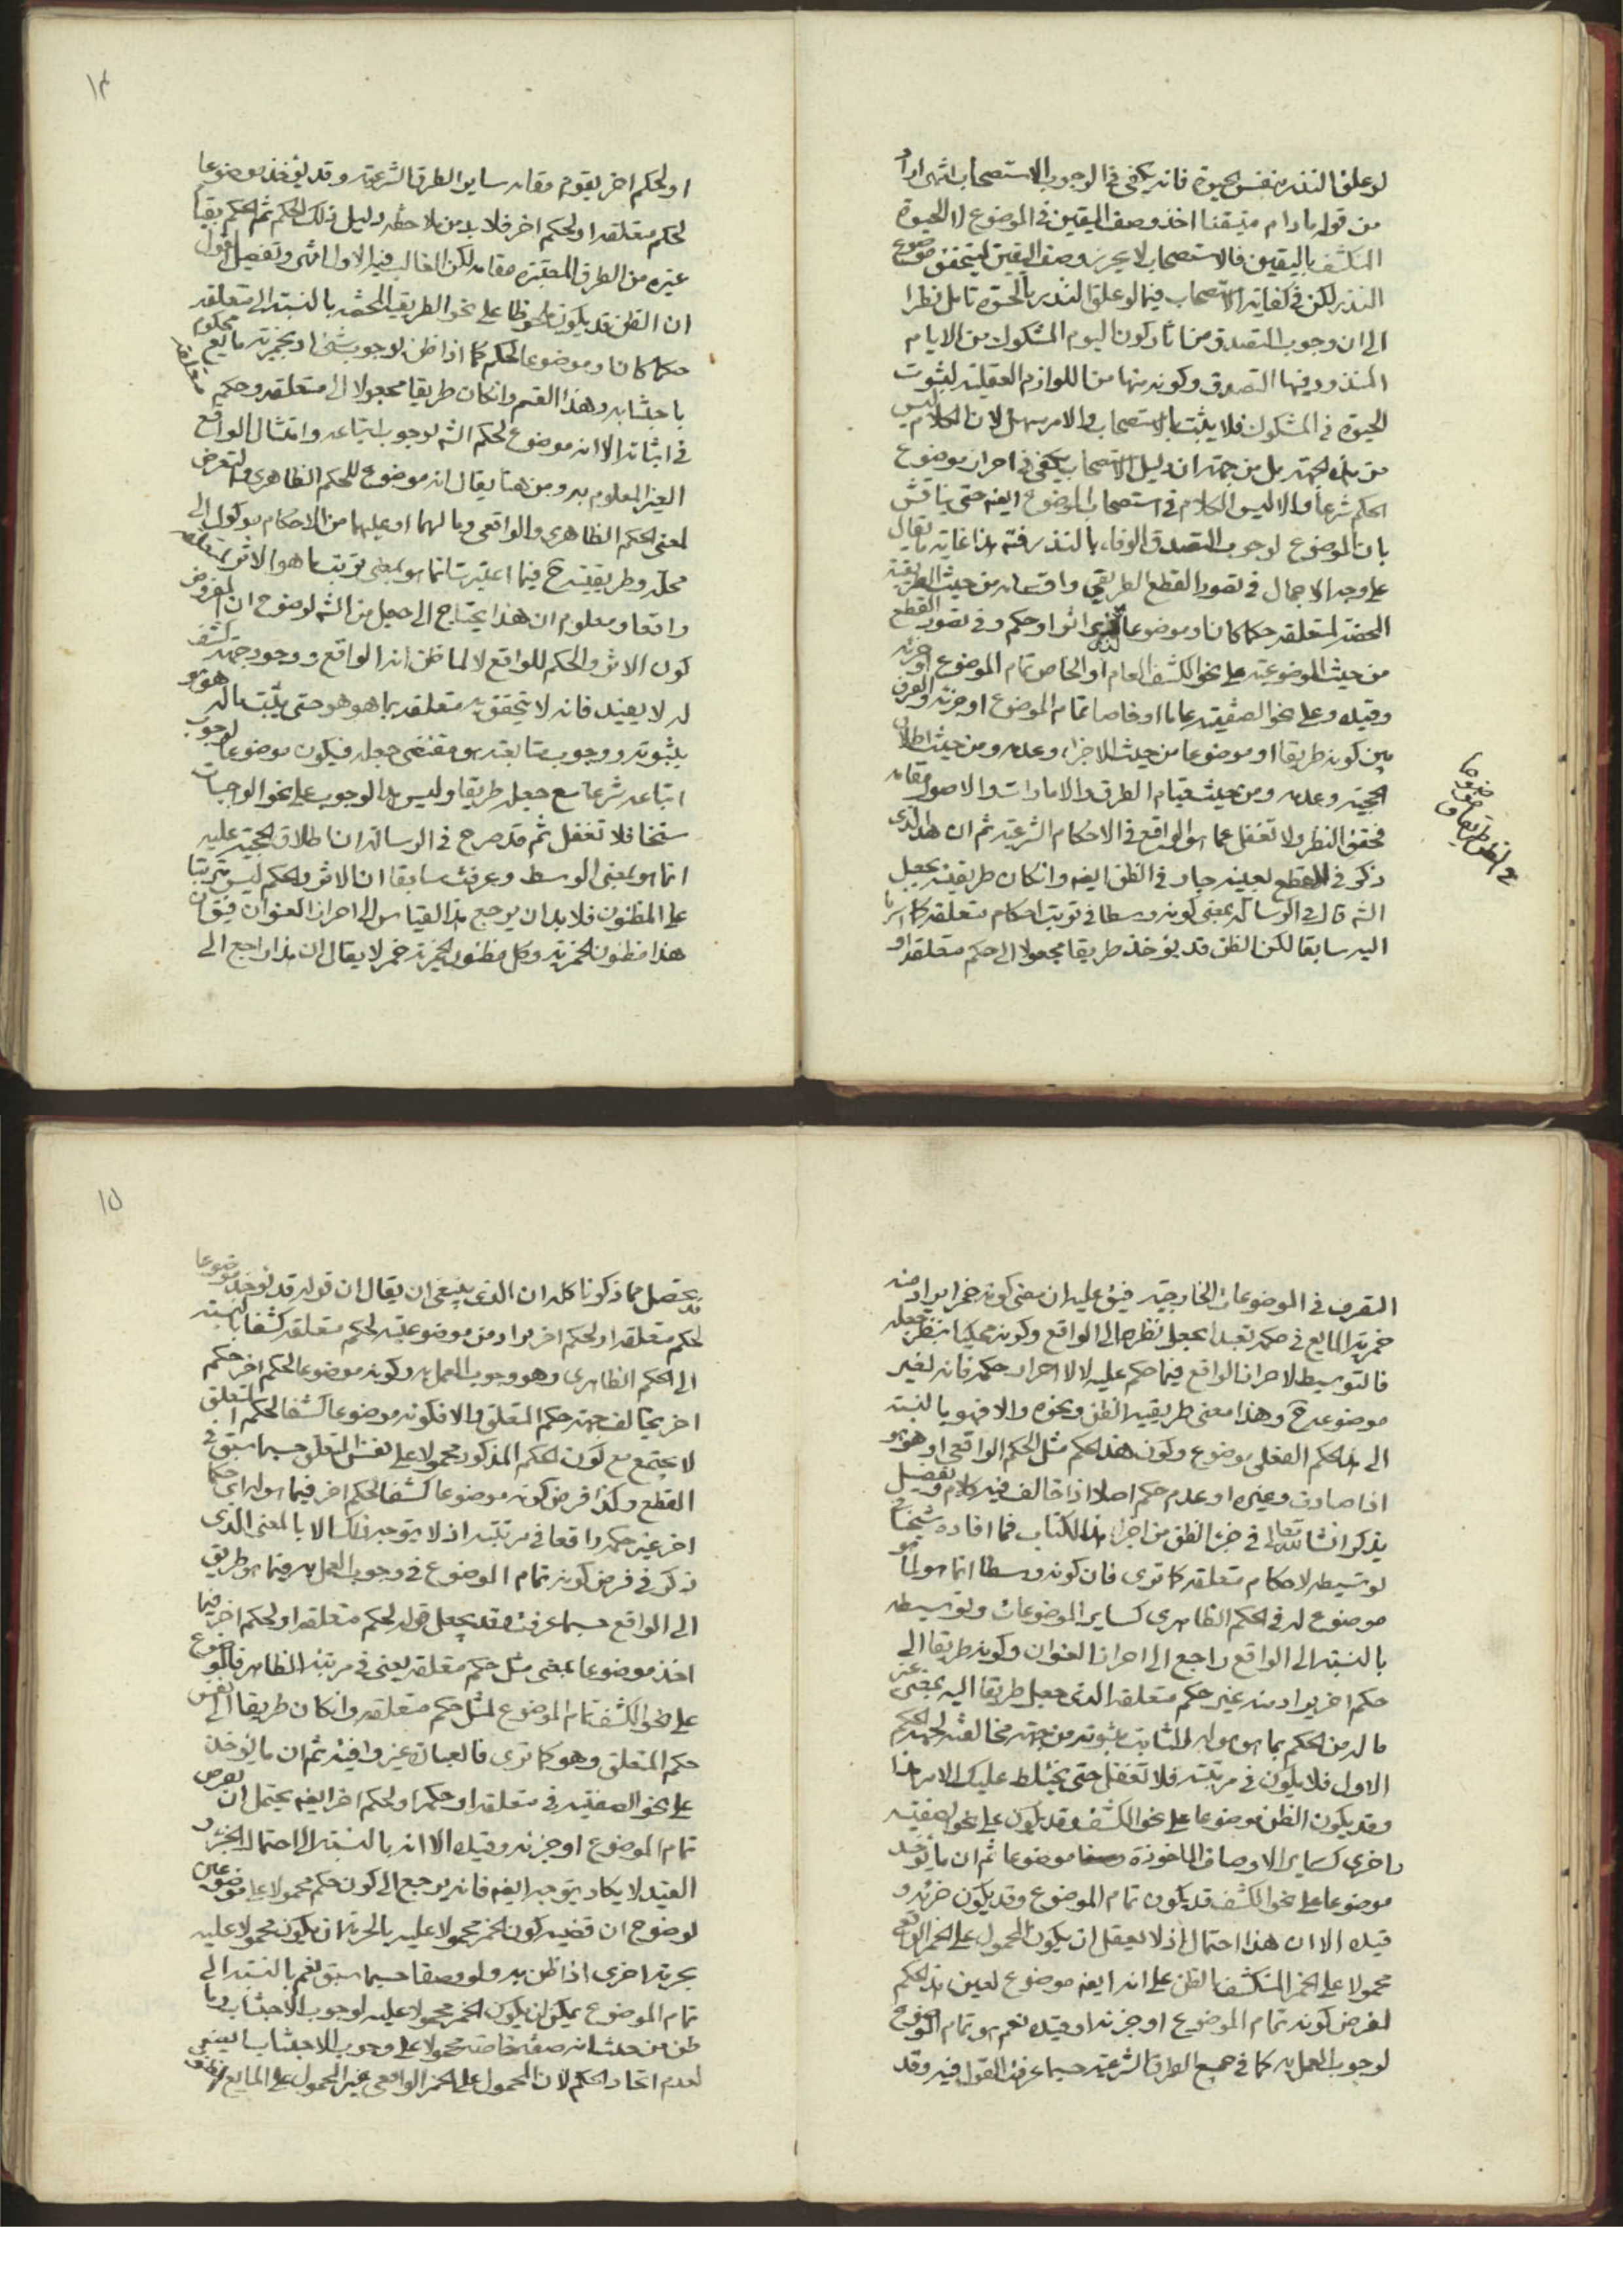 لو علق النذر بنفس الحيوة فانه يكفى فى الوجوب الاستصحاب انتهى اراد
من قوله ما دام متيقنا اخذ وصف اليقين فى الموضوع اى الحيوة
المنكشف باليقين فالاستصحاب لا يحرز وصف اليقين ليتحقق موضوع
النذر لكن فى كفاية الاستصحاب فيما لو علق النذر بالحيوة تامل نظرا
الى ان وجوب التصدق من اثار كون اليوم المشكوك من الايام
المنذور فيها التصدق وكونه منها من اللوازم العقلية لثبوت
الحيوة فى المشكوك فلا يثبت بالاستصحاب والامر سهل لان الكلام ليس
من هذه الجهة بل من جهة ان دليل الاستصحاب يكفى فى احراز موضوع
الحكم شرعا والا ليس الكلام فى استصحاب الموضوع ايضه حتى يناقش
بان الموضوع لوجوب التصدق الوفاء بالنذر فته هذا غاية ما يقال
على وجه الاجمال فى تصور القطع الطريقى واقسامه من حيث الطريقية
المحضة لمتعلقه حكما كان او موضوعا اثرا او حكم وفى تصور القطع
من حيث الموضوعية على نحو الكشف العام او الخاص تمام الموضوع او جزئه
وقيده وعلى نحو الصفتية عاما او خاصا تمام الموضوع او جزئه والفرق
بين كونه طريقا او موضوعا من حيث الاجزاء وعدمه ومن حيث اطلاق
الحجية وعدمه ومن حيث قيام الطرق والامارات والاصول مقامه
فحقق النظر ولا تغفل عما هو الواقع فى الاحكام الشرعية ثم ان هذا الذى
ذكر فى القطع بعينه جار فى الظن ايضه وان كان طريقيته بجعل
الشه قال فى الرسالة بمعنى كونه وسطا فى ترتب احكام متعلقه كما اشرنا
اليه سابقا لكن الظن قد يؤخذ طريقا مجعولا الى حكم متعلقه او
فى الظن طريقا و موضوعا
١٤
او لحكم اخر يقوم مقامه ساير الطرق الشرعية وقد يؤخذ موضوعا
لحكم متعلقه او لحكم اخر فلا بد من ملاحظة دليل ذلك الحكم ثم الحكم بقيام
غيره من الطرق المعتبرة مقامه لكن الغالب فيه الاول انتهى وتفصيل القول
ان الظن قد يكون ملحوظا على نحو الطريقية المحضة بالنسبة الى متعلقه
حكما كان او موضوعا لحكم كما اذا ظن لوجوب شئ او بخمرية مايع محكوم
باجتنابه وهذا القسم وان كان طريقا مجعولا الى متعلقه وحكم متعلقه
فى اثباته الا انه موضوع لحكم الشه لوجوب اتباعه وامتثال الواقع
الغير المعلوم به ومن هنا يقال انه موضوع للحكم الظاهرى والتعرض
لمعنى الحكم الظاهرى والواقعى وما لهما او عليهما من الاحكام موكول الى
محله وطريقيته ح فيما اعتبرت انما هو بمعنى ترتب ما هو الاثر لمتعلقه
واقعا ومعلوم ان هذا يحتاج الى جعل من الشه لوضوح ان المفروض
كون الاثر والحكم للواقع لا لما ظن انه الواقع ووجود جهة كشف
له لا يفيد فانه لا يتحقق به متعلقه بما هو هو حتى يثبت ما له
بثبوته ووجوب متابعته هو مقتضى جعله فيكون موضوعا لوجوب
اتباعه شرعا مع جعله طريقا وليس هذا الوجوب على نحو الواجبات
سنخا فلا تغفل ثم قد صرح فى الرسالة ان اطلاق الحجية عليه
انما هو بمعنى الوسط وعرفت سابقا ان الاثر والحكم ليس مترتبا
على المظنون فلا بد ان يرجع هذا القياس الى احراز العنوان فيق ان
هذا مظنون الخمرية وكل مظنون الخمرية خمر لا يقال ان هذا راجع الى
التصرف فى الموضوعات الخارجية فيق عليه ان معنى كونه خمرا يراد منه
خمرية المايع فى حكمه تعبدا بجعل نظره الى الواقع وكونه محكيا بنظر جعله
فالتوسيط لاحراز الواقع فيما حكم عليه لا لاحراز حكمه فانه لغير
موضوعه ح وهذا معنى طريقية الظن ونحوه والا فهو بالنسبة
الى هذا الحكم الفعلى موضوع وكون هذا الحكم مثل الحكم الواقعى او هو هو
اذا صادف وغيره او عدم حكم اصلا اذا خالف فيه كلام وتفصيل
يذكر انشاء الله تعالى فى جزء الظن من اجزاء هذا الكتاب فما افاده شيخنا فى
توسيطه لاحكام متعلقه كما ترى فان كونه وسطا انما هو لما هو
موضوع له فى الحكم الظاهرى كساير الموضوعات وتوسيطه
بالنسبة الى الواقع راجع الى احراز العنوان وكونه طريقا الى
حكم اخر يراد منه غير حكم متعلقه الذى جعل طريقا اليه بمعنى غير
ما له من الحكم بما هو هو الثابت بثبوته من جهة مخالفته لجهة الحكم
الاول فلا يكون فى مرتبته فلا تغفل حتى يختلط عليك الامر هذا
وقد يكون الظن موضوعا على نحو الكشف وقد يكون على نحو الصفتية
واخرى كساير الاوصاف الماخوذة موضوعا ثم ان ما يؤخذ
موضوعا على نحو الكشف قد يكون تمام الموضوع وقد يكون جزئه و
قيده الا ان هذا احتمال اذ لا يعقل ان يكون المحمول على الخمر الواقعى
محمولا على الخمر المنكشف بالظن على انه ايضه موضوع لعين هذا الحكم
لفرض كونه تمام الموضوع او جزئه او قيده نعم هو تمام الموضوع
لوجوب العمل به كما فى جميع الطرق الشرعية حسبما عرفت القول فيه وقد
١٥
يتحصل مما ذكرنا كله ان الذى ينبغى ان يقال ان قوله قد يؤخذ موضوعا
لحكم متعلقه او لحكم اخر يراد من موضوعيته لحكم متعلقه كشفا بالنسبة
الى الحكم الظاهرى وهو وجوب العمل به وكونه موضوعا لحكم اخر حكم
اخر يخالف جهة حكم المتعلق والا فكونه موضوعا كشفا لحكم المتعلق
لا يجتمع مع كون الحكم المذكور محمولا على نفس المتعلق حسبما سبق فى
القطع وكذا فرض كونه موضوعا كشفا لحكم اخر فيما هو له اى حكما
اخر غير حكمه واقعا فى مرتبته اذ لا يتوجه ذلك الا بالمعنى الذى
ذكر فى فرض كونه تمام الموضوع فى وجوب العمل به فيما هو طريق
الى الواقع حسبما عرفت وقد يجعل قوله لحكم متعلقه او لحكم اخر فيما
اخذ موضوعا بمعنى مثل حكم متعلقه يعنى فى مرتبة الظاهر فالموضوع
على نحو الكشف تمام الموضوع لمثل حكم متعلقه وان كان طريقا الى نفس
حكم المتعلق وهو كما ترى فالعبارة غير وافية ثم ان ما يؤخذ
على نحو الصفتية فى متعلقه او حكمه او لحكم اخر ايضه يحتمل ان يفرض
تمام الموضوع او جزئه وقيده الا انه بالنسبة الى احتمال الجزء و
القيد لا يكاد يتوجه ايضه فانه يرجع الى كون حكم محمولا على موضوعين
لوضوح ان قضية كون الخمر محمولا عليه بالحرمة ان يكون محمولا عليه
بحرمة اخرى اذا ظن به ولو وصفا حسبما سبق نعم بالنسبة الى
تمام الموضوع يمكن ان يكون الخمر محمولا عليه لوجوب الاجتناب وما
ظن من حيث انه صفة خاصة محمولا على وجوب الاجتناب ايضه
لعدم اتحاد الحكم لان المحمول على الخمر الواقعى غير المحمول على المايع